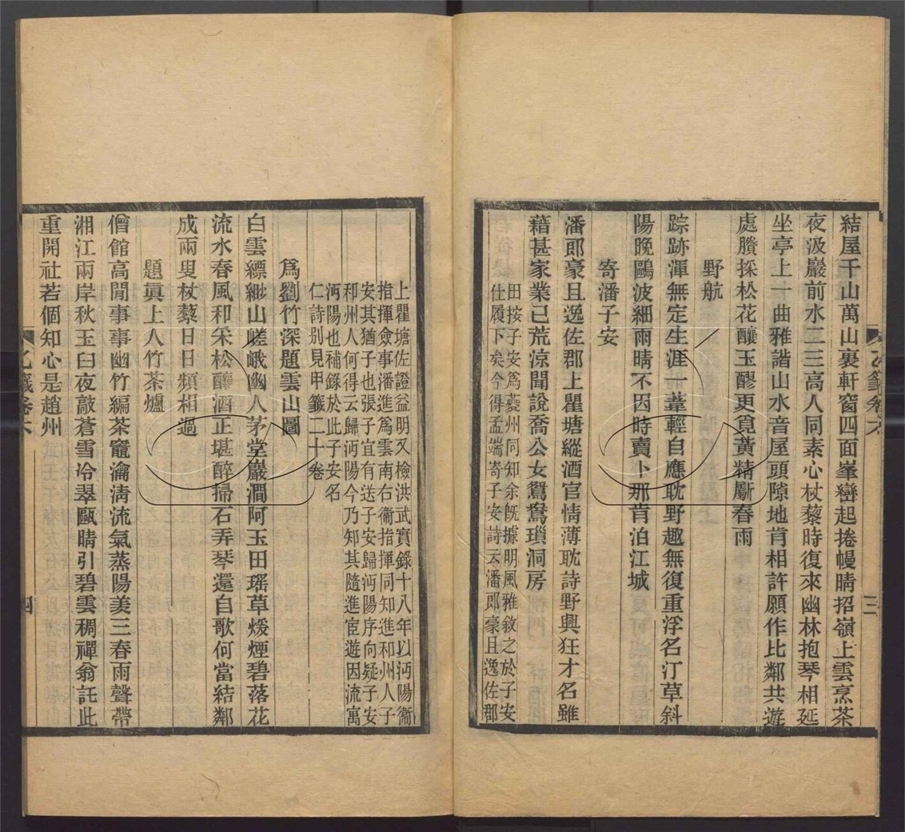 結屋千山萬山裏軒窗四面峯巒起捲幔晴招嶺上雲烹茶
夜汲巖前水二三高人同素心杖藜時復來幽林抱琴相延
坐亭上一曲雅諧山水音屋頭隙地肯相許願作比鄰共遊
處賸採松花釀玉醪更覓黃精斸春雨
野航
踪跡渾無定生涯一葦輕自應耽野趣無復重浮名汀草斜
陽晚鷗波細雨晴不因時賣卜那肯泊江城
寄潘子安
潘郎豪且逸佐郡上瞿塘縱酒官情薄耽詩野興狂才名雖
藉甚家業已荒涼聞說喬公女鴛鴦瑣洞房
田按子安爲夔州同知余旣據明風雅敘之於子安
仕履下矣今得孟端寄子安詩云潘郎豪且逸佐郡
乙籤卷六
三
上瞿塘佐證益明又檢洪武實錄十八年以沔陽衞
指揮僉事潘進爲雲南右衞指揮同知進和州人子
安其猶子也張子宜有送子安歸沔陽序向疑子安
和州人何得云歸沔陽今乃知其隨進宦遊因流寓
沔陽也補錄於此子安名
仁詩別見甲籤二十卷
爲劉竹深題雲山圖
白雲縹緲山嵯峨幽人茅堂巖澗阿玉田瑤草煖煙碧落花
流水春風和采松釀酒正堪醉掃石弄琴還自歌何當結鄰
成兩叟杖藜日日頻相過
題眞上人竹茶爐
僧館高閒事事幽竹編茶竈瀹淸流氣蒸陽羨三春雨聲帶
湘江兩岸秋玉臼夜敲蒼雪冷翠甌晴引碧雲稠禪翁託此
重開社若個知心是趙州
乙籤卷六
四